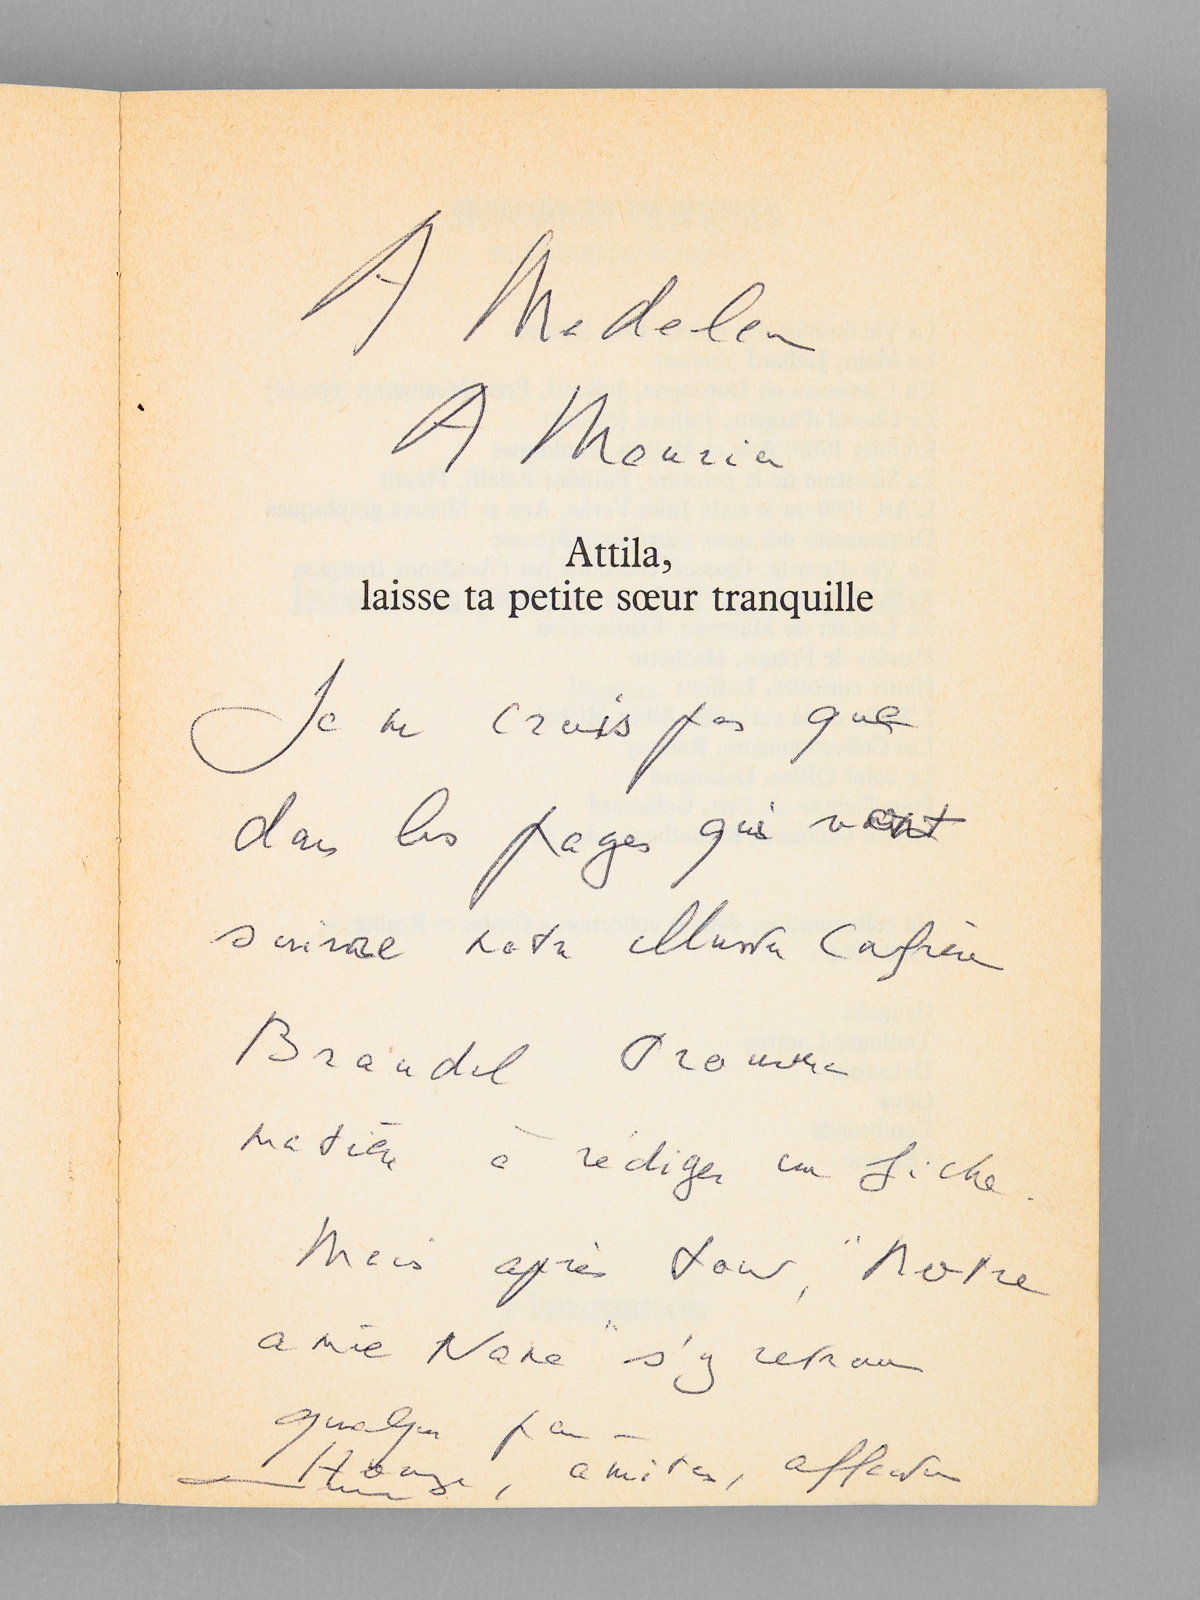 A Madelen
A Mauric
Attila,
laisse ta petite sœur tranquille
Je ne crois pas que
dans les pages qui vont
suivre notre illustre Confrère
Braudel trouvera
matière à rédiger une fiche.
Mais après tout, "Notre
amie Nane" s'y retrouve
quelque peu
amitiés, affection